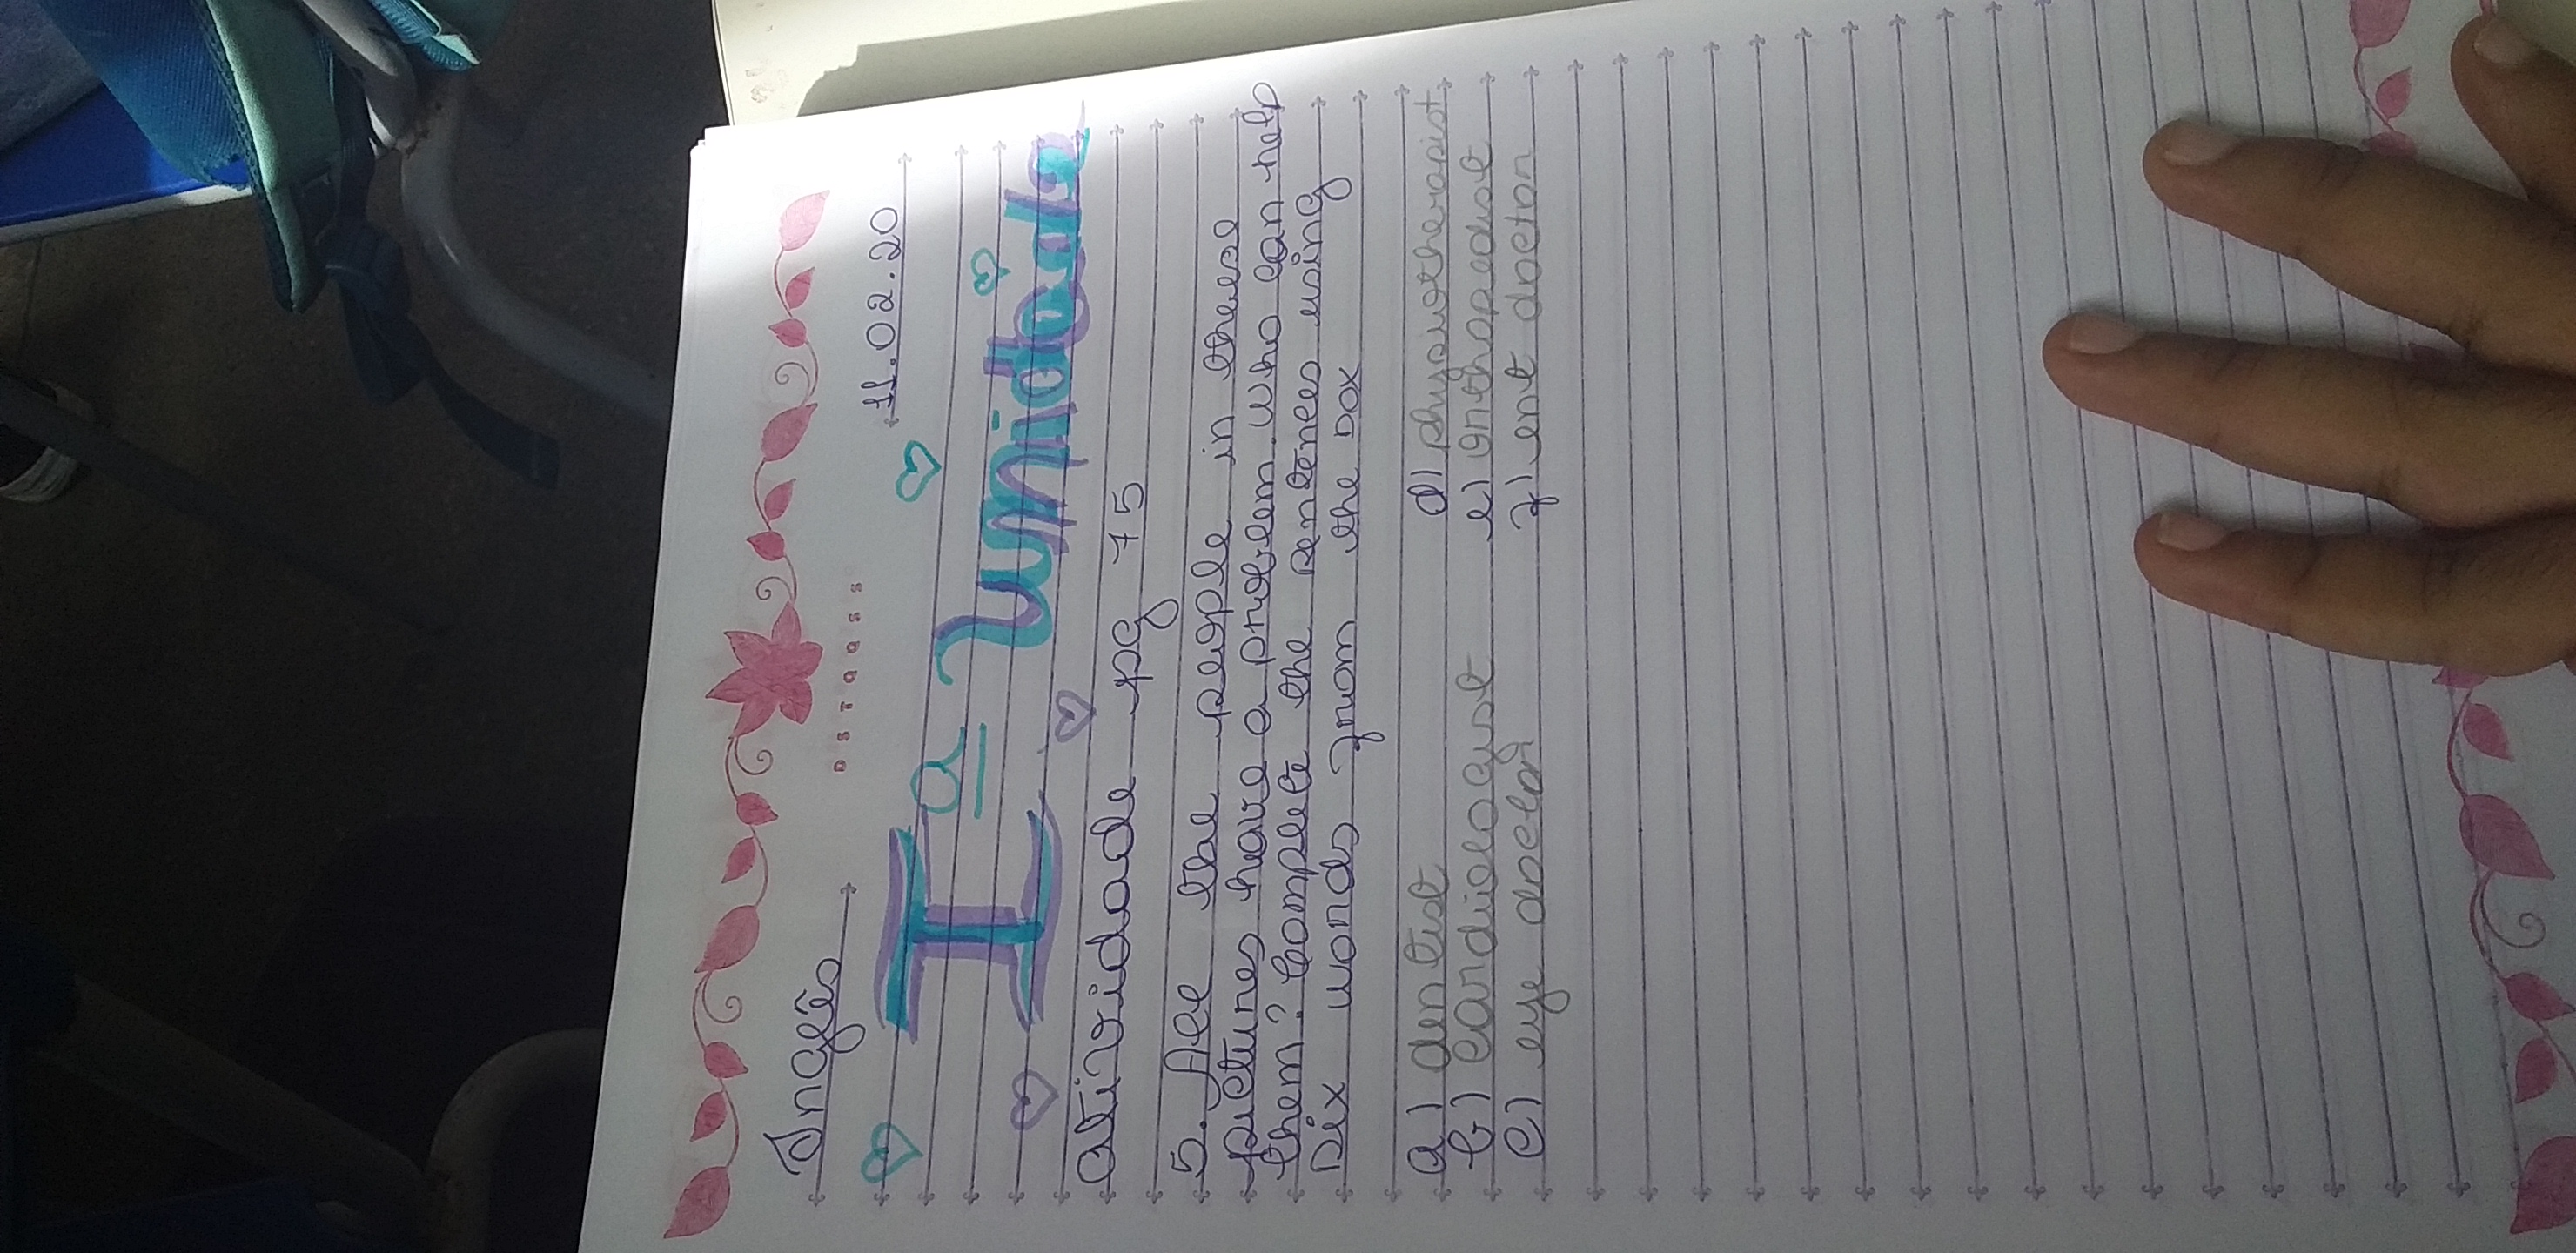 Inglês
11.02.20
I a Unidade
atividade pg 75
5. All the people in these
pictures have a problem. Who can help
them? Complete the sentences using
six words from the box
a) dentist
b) cardiologist
c) eye doctor
d) physiotherapist
e) orthopedist
f) ent doctor